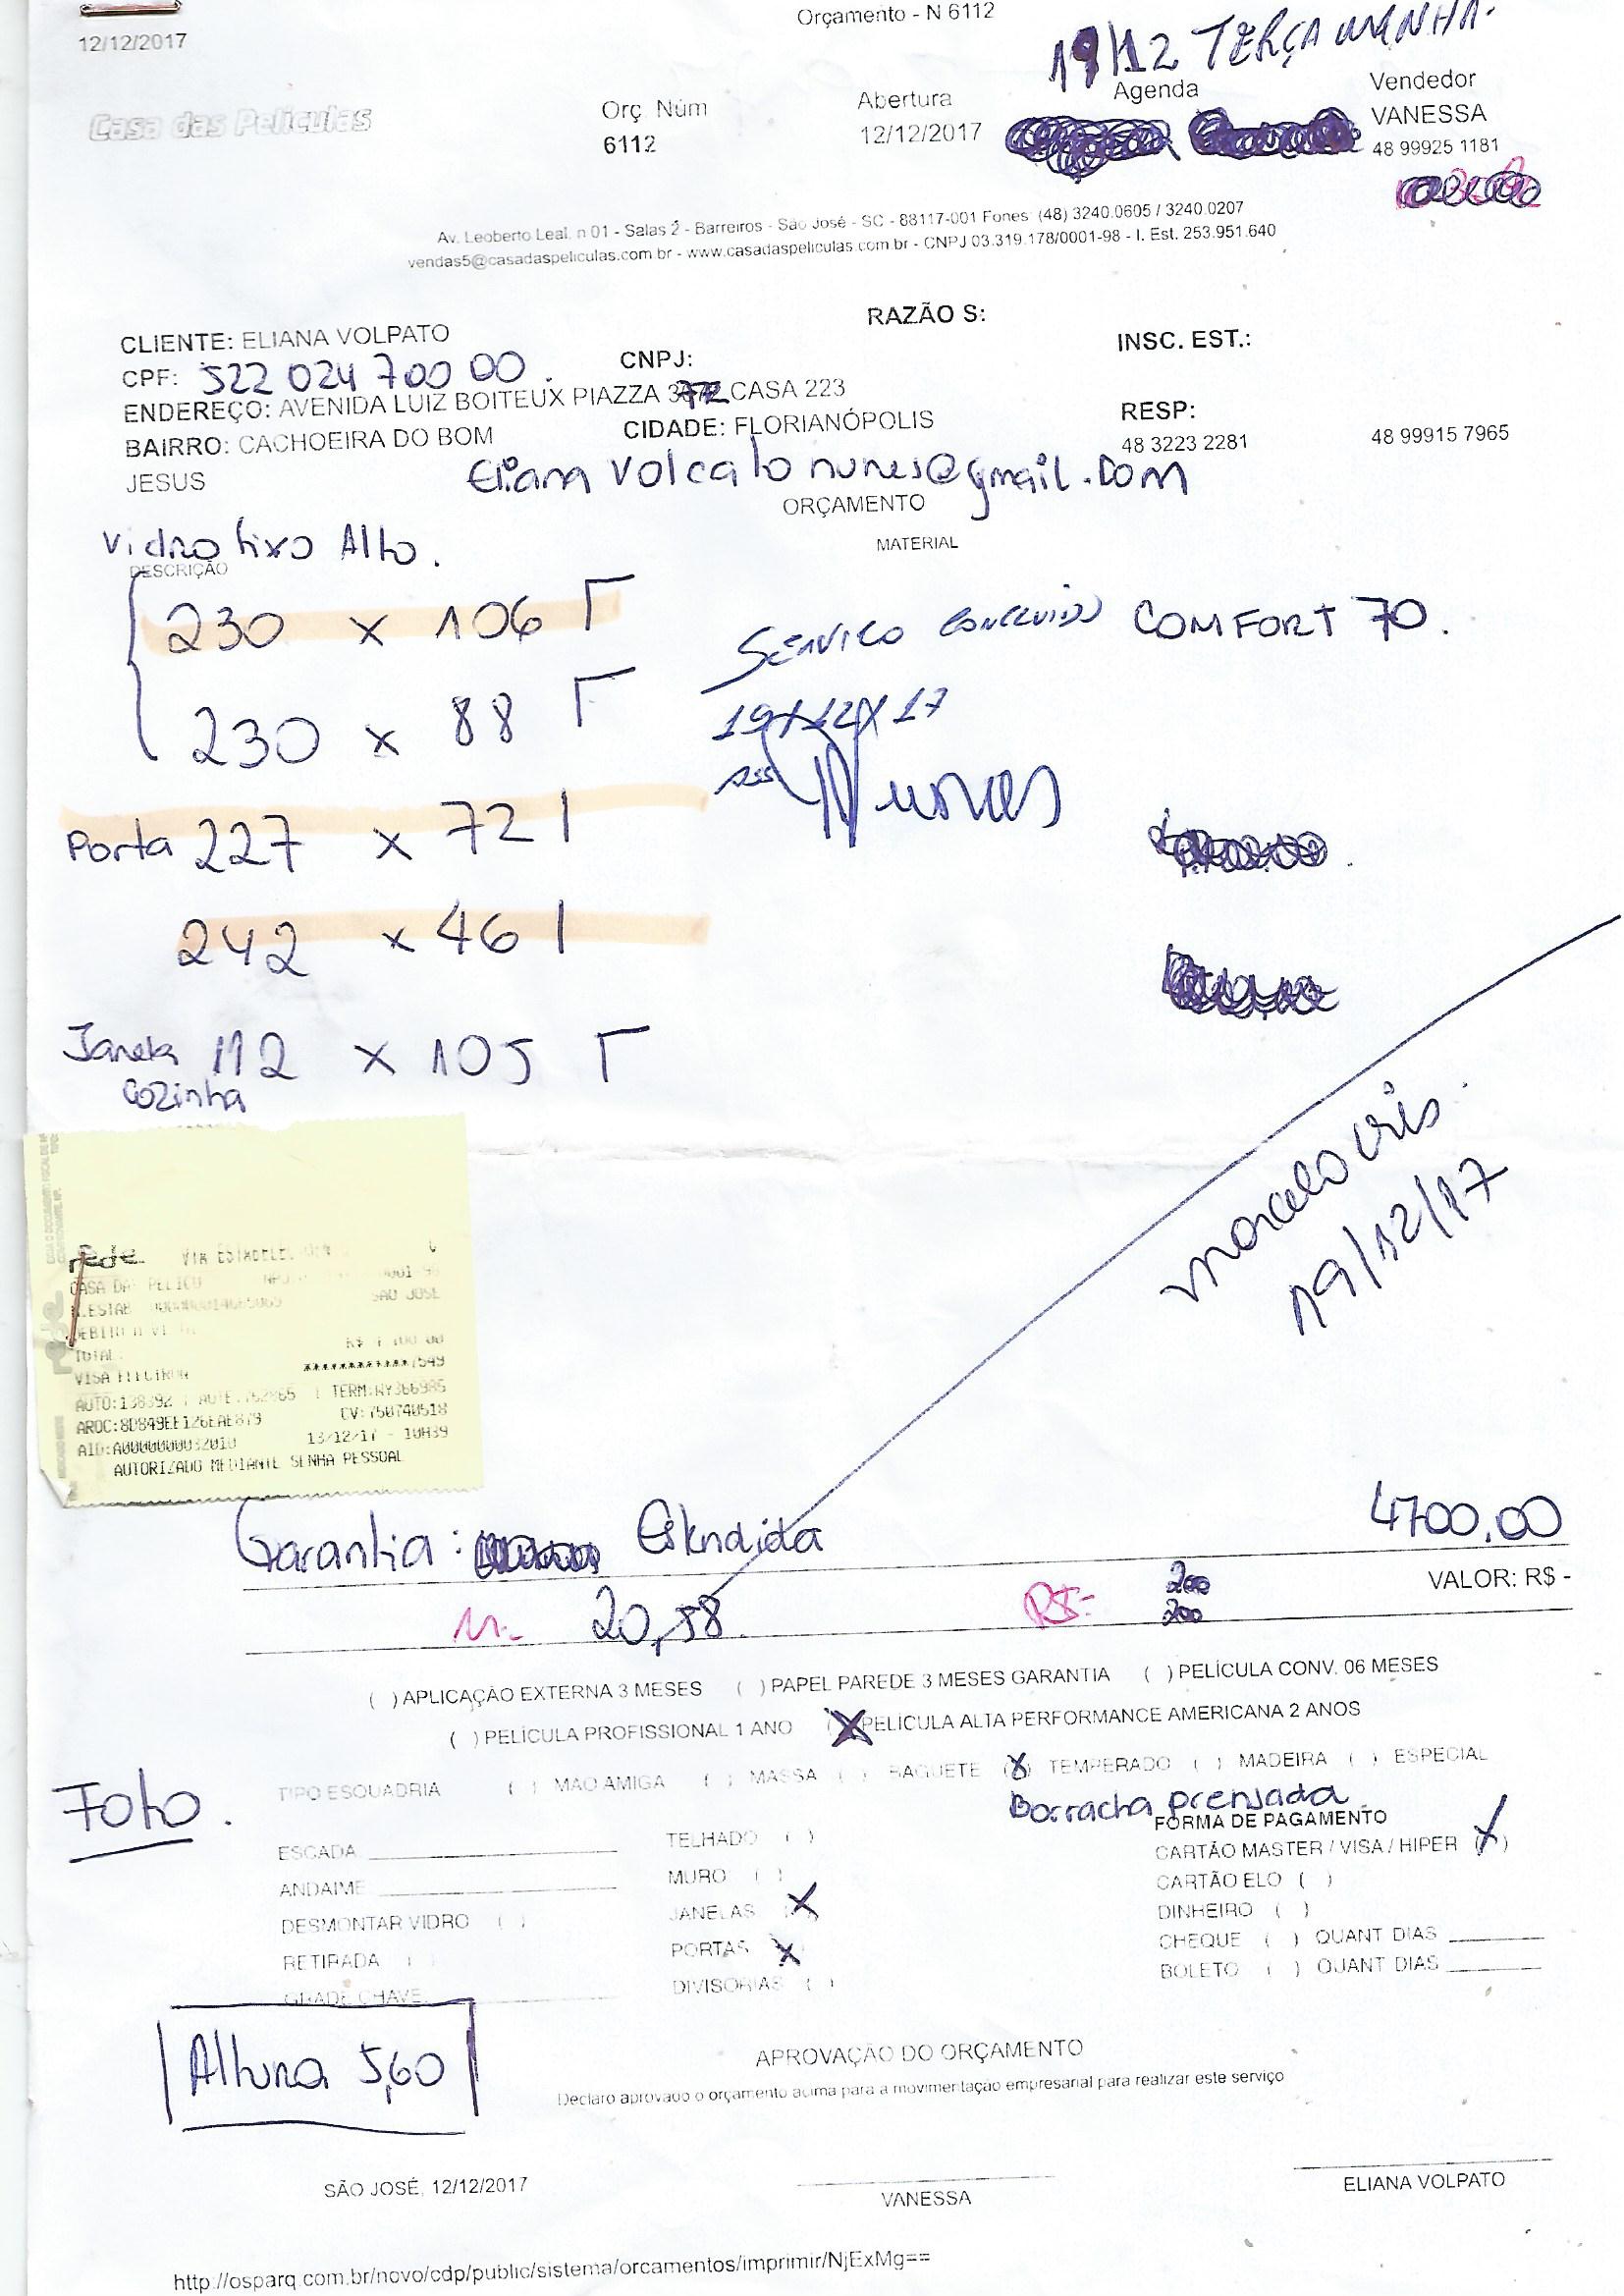 Orçamento - N 6112
12/12/2017
19/12 TERÇA MANHA.
Casa das Películas
Orç Núm
6112
Abertura
12/12/2017
Agenda
Vendedor
VANESSA
48 99925 1181
Av. Leoberto Leal, n 01 - Salas 2 - Barreiros - São José - SC - 88117-001 Fones: (48) 3240.0605 / 3240.0207
vendas5@casadaspeliculas.com.br - www.casadaspeliculas.com.br - CNPJ 03.319.178/0001-98 - I. Est. 253.951.640
RAZÃO S:
CLIENTE: ELIANA VOLPATO
CNPJ:
INSC. EST.:
CPF: 522 024 700 00.
ENDEREÇO: AVENIDA LUIZ BOITEUX PIAZZA CASA 223
BAIRRO: CACHOEIRA DO BOM
JESUS
CIDADE: FLORIANÓPOLIS
RESP:
48 3223 2281
48 99915 7965
@gmail.com
ORÇAMENTO
Vidro fixo Alto.
DESCRIÇÃO
MATERIAL
230 x 106
SERVIÇO CONCLUIDO COMFORT 70.
230 x 88
19/12/17
ass Nunes
Porta 227 x 72
242 x 46
Janela 112 x 105
Cozinha
marcelo
19/12/17
rede
SAO JOSE
TOTAL
VISA
AUTO:138392
TERM:WY366985
CV:750740518
13/12/17 - 10H39
AUTORIZADO MEDIANTE SENHA PESSOAL
Garantia: Estendida
4700,00
VALOR: R$ -
M- 20,58
R$-
200
200
( ) APLICAÇÃO EXTERNA 3 MESES ( ) PAPEL PAREDE 3 MESES GARANTIA ( ) PELÍCULA CONV. 06 MESES
( ) PELÍCULA PROFISSIONAL 1 ANO (X) PELÍCULA ALTA PERFORMANCE AMERICANA 2 ANOS
TIPO ESQUADRIA ( ) MAO AMIGA ( ) MASSA ( ) BAGUETE (X) TEMPERADO ( ) MADEIRA ( ) ESPECIAL
Foto.
Borracha prensada
FORMA DE PAGAMENTO
ESCADA
TELHADO ( )
CARTÃO MASTER / VISA / HIPER (X)
ANDAIME
MURO ( )
CARTÃO ELO ( )
DESMONTAR VIDRO ( )
JANELAS (X)
DINHEIRO ( )
RETIRADA ( )
PORTAS (X)
CHEQUE ( ) QUANT DIAS
GRADE CHAVE
DIVISORIAS ( )
BOLETO ( ) QUANT DIAS
Altura 5,60
APROVAÇÃO DO ORÇAMENTO
Declaro aprovado o orçamento acima para a movimentação empresarial para realizar este serviço
SÃO JOSÉ, 12/12/2017
VANESSA
ELIANA VOLPATO
http://osparq.com.br/novo/cdp/public/sistema/orcamentos/imprimir/NjExMg==